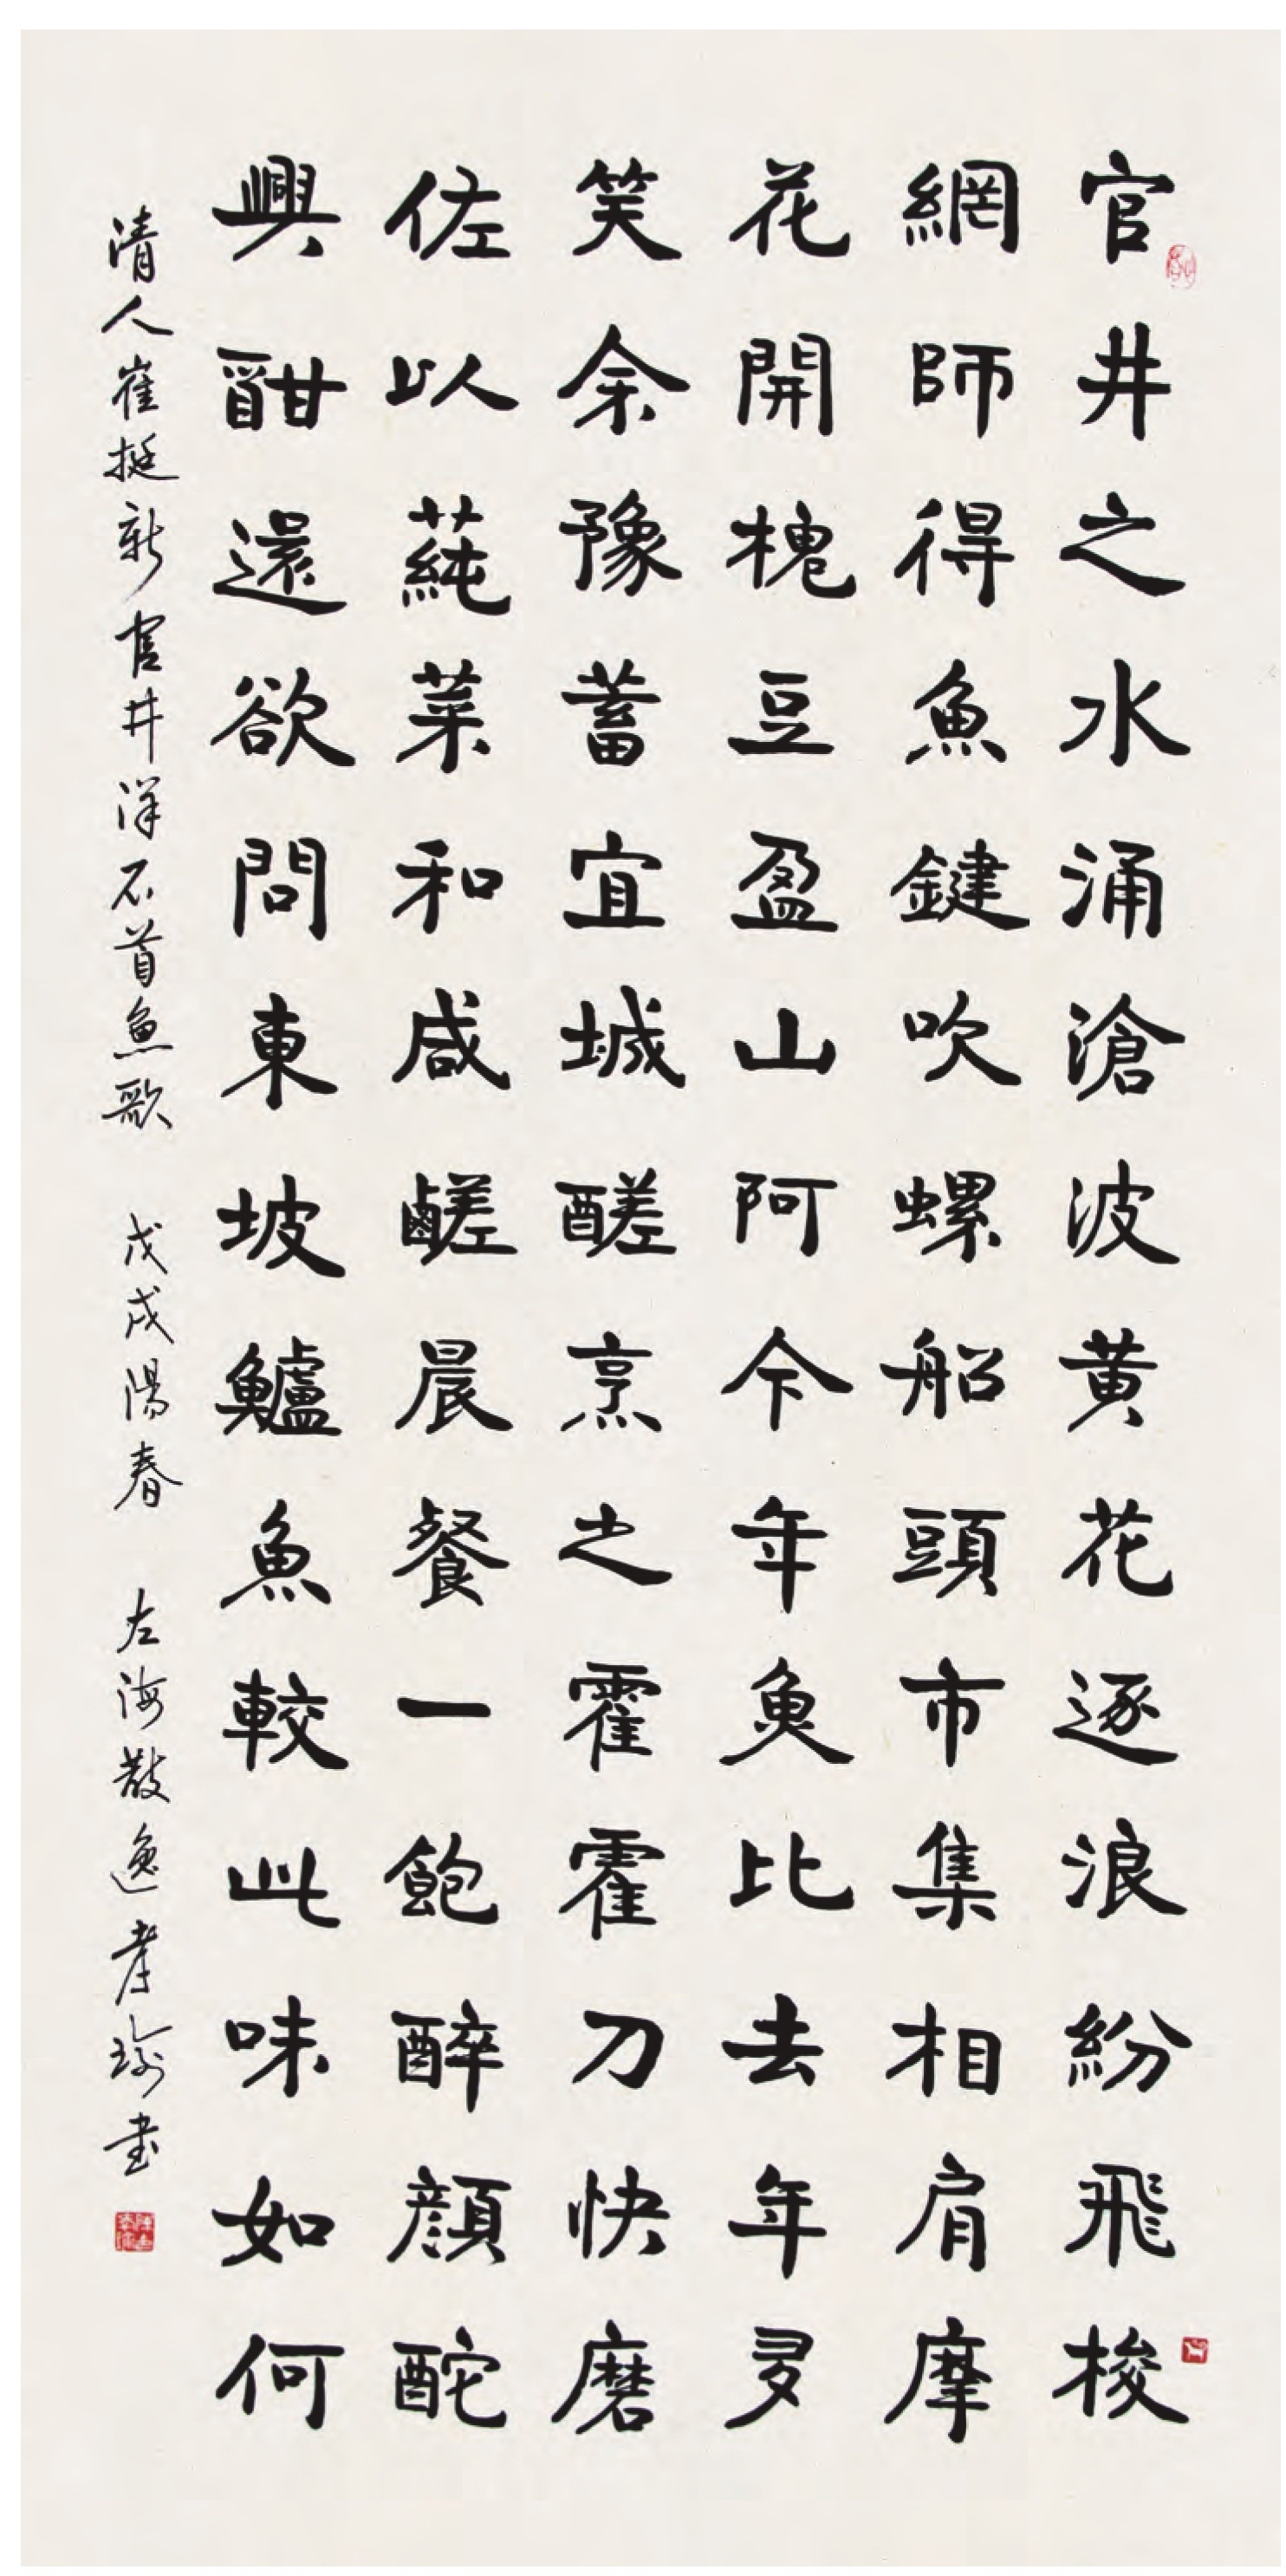 官井之水涌滄波黄花逐浪紛飛梭
網師得魚鍵吹螺船頭市集相肩摩
花開槐豆盈山阿今年魚比去年多
笑余豫蓄宜城醝烹之霍霍刀快磨
佐以蒓菜和咸鹺晨餐一飽醉顔酡
興酣還欲問東坡鱸魚較此味如何
清人崔挺新官井洋石首魚歌 戊戌陽春 左海散逸孝瑜书